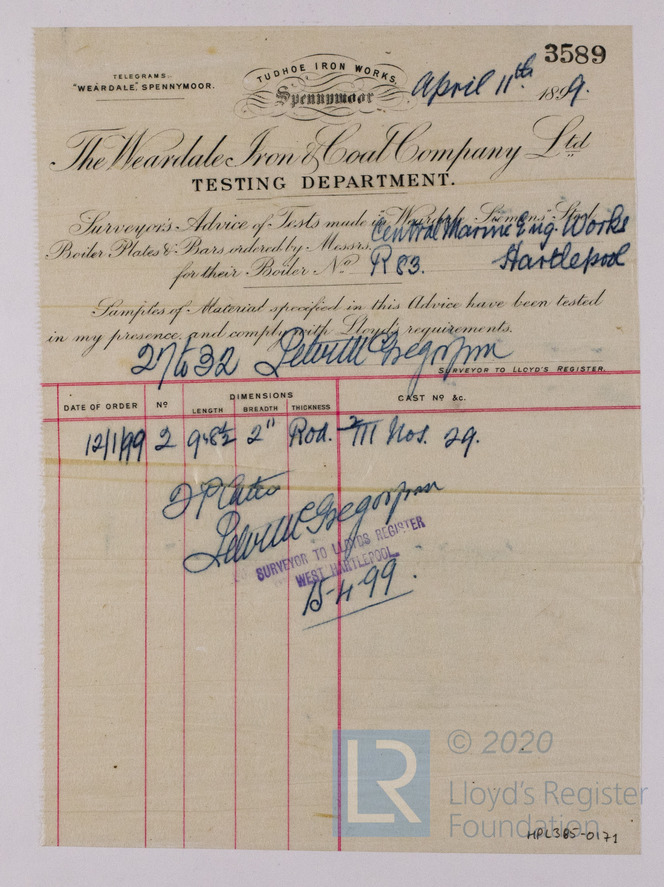 3589
TELEGRAMS.
"WEARDALE," SPENNYMOOR.
TUDHOE IRON WORKS,
Spennymoor
April 11th 1899.
The Weardale Iron & Coal Company Ltd
TESTING DEPARTMENT.
Surveyor's Advice of Tests made in "Weardale Siemens" Steel
Boiler Plates & Bars ordered by Messrs. Central Marine Eng. Works
for their Boiler No R 83. Hartlepool
Samples of Material specified in this Advice have been tested
in my presence, and comply with Lloyd's requirements.
27 to 32
SURVEYOR TO LLOYD'S REGISTER.
DATE OF ORDER No DIMENSIONS CAST No &c.
LENGTH BREADTH THICKNESS
12/1/99 2 2" Rod. Nos. 29.
SURVEYOR TO LLOYDS REGISTER
WEST HARTLEPOOL
15-4-99
© 2020
LR
Lloyd's Register
Foundation
HPL385-0171